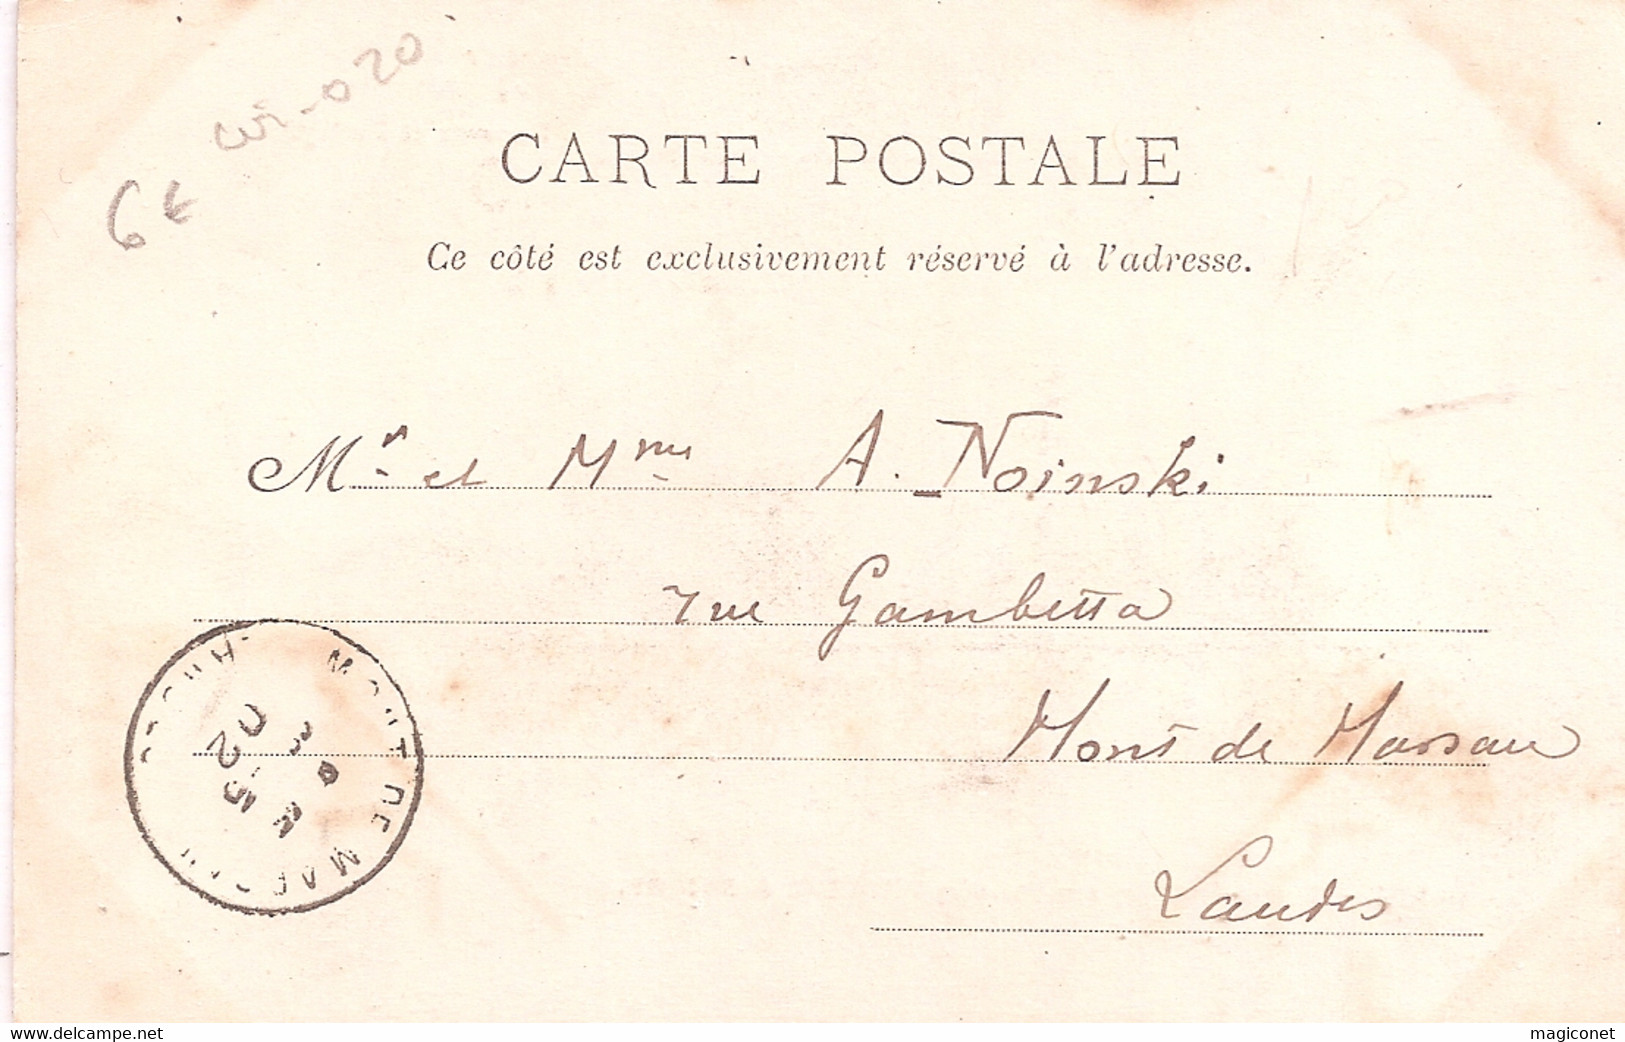 CARTE POSTALE
Ce côté est exclusivement réservé à l'adresse.
6€
Mr et Mme A. Noinski
rue Gambetta
Mont de Marsan
Landes
MONT DE MARSAN
02
www.delcampe.net
magiconet